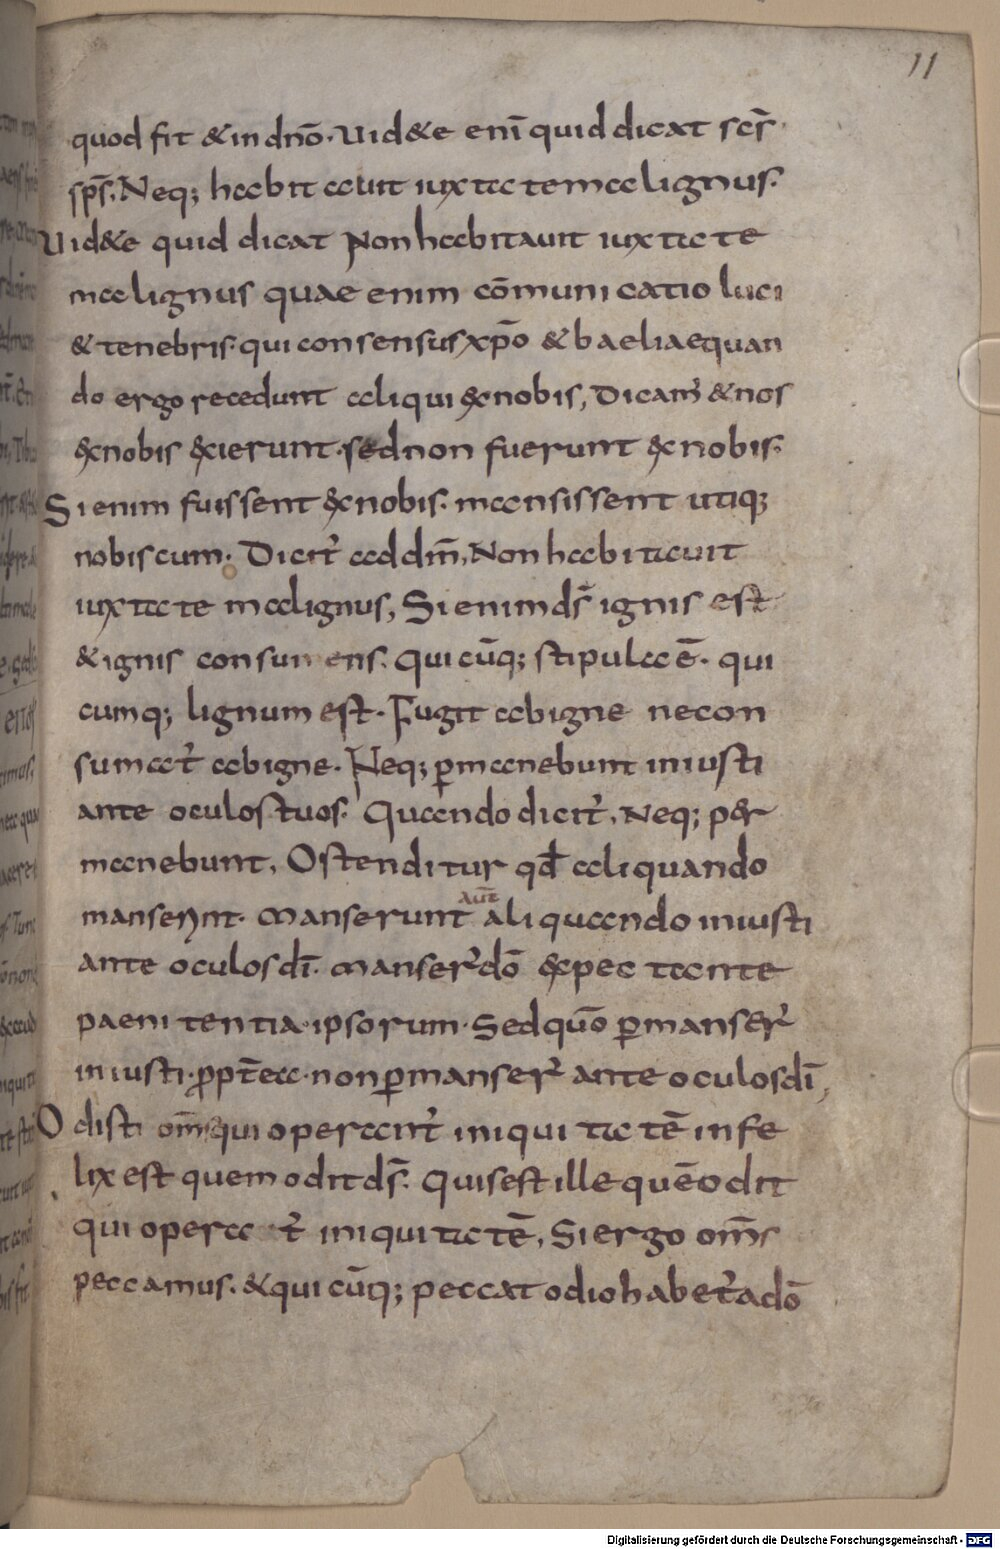 11
quod fit & in dnō. Uid&e enī quid dicat scs̄
sps̄. Neq; habitauit iuxta te malignus.
Uid&e quid dicat Non habitauit iuxta te
malignus quae enim cōmunicatio luci
& tenebris. qui consensus xpō & baeliae quan
do ergo recedunt aliqui &nobis, Dicam̄ & nos
exnobis exierunt. sed non fuerunt exnobis.
Si enim fuissent exnobis. mansissent utiq;
nobiscum. Dicit̄ ad dm̄, Non habitauit
iuxta te malignus, Si enim ds̄ ignis est
& ignis consumens. Quicūq; stipula ē. qui
cumq; lignum est. Fugit ab igne necon
sumat̄ ab igne. Neq; ꝑmanebunt iniusti
ante oculos tuos. Quando dicit̄, Neq; per
manebunt, Ostenditur qd̄ aliquando
manserunt. manserunt aut̄ aliquando iniusti
ante oculos dī. manser̄ dō expectante
paenitentia ipsorum. Sed quō ꝑmanser̄
iniusti. propt̄ea. non ꝑmanser̄ ante oculos dī,
Odisti om̄s qui operant̄ iniquitatē infe
lix est quem odit ds̄. Quis est ille quē odit
qui opera t̄ iniquitatē, Si ergo om̄s
peccamus. & quicūq; peccat odio habet̄ a dō
Digitalisierung gefördert durch die Deutsche Forschungsgemeinschaft - DFG